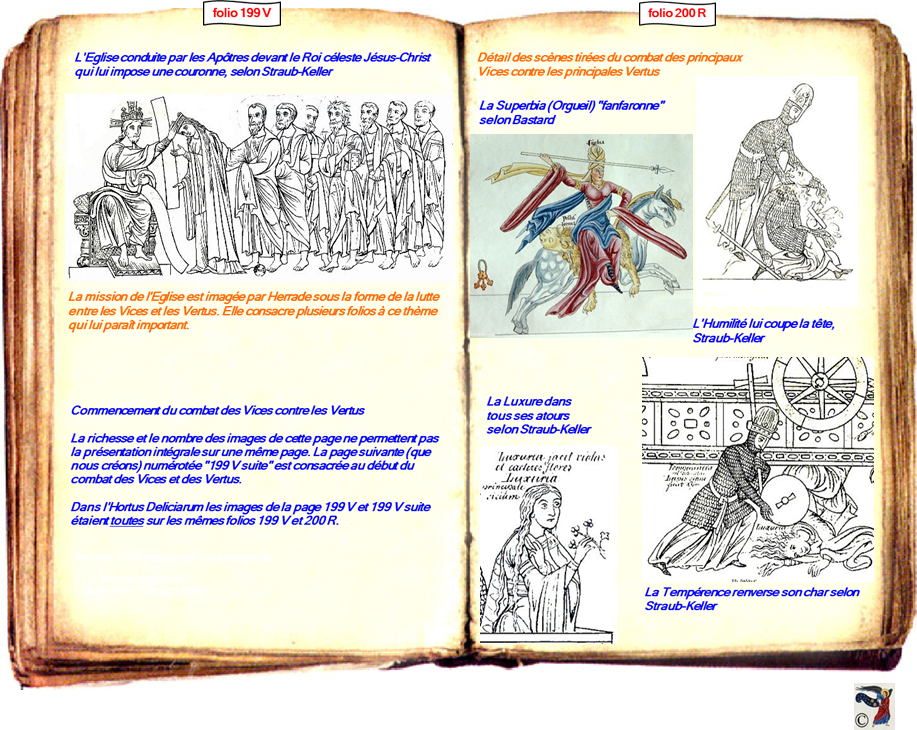 folio 199 V
L'Eglise conduite par les Apôtres devant le Roi céleste Jésus-Christ
qui lui impose une couronne, selon Straub-Keller
La mission de l'Eglise est imagée par Herrade sous la forme de la lutte
entre les Vices et les Vertus. Elle consacre plusieurs folios à ce thème
qui lui paraît important.
Commencement du combat des Vices contre les Vertus
La richesse et le nombre des images de cette page ne permettent pas
la présentation intégrale sur une même page. La page suivante (que
nous créons) numérotée "199 V suite" est consacrée au début du
combat des Vices et des Vertus.
Dans l'Hortus Deliciarum les images de la page 199 V et 199 V suite
étaient toutes sur les mêmes folios 199 V et 200 R.
folio 200 R
Détail des scènes tirées du combat des principaux
Vices contre les principales Vertus
La Superbia (Orgueil) "fanfaronne"
selon Bastard
L'Humilité lui coupe la tête,
Straub-Keller
La Luxure dans
tous ses atours
selon Straub-Keller
Luxuria jacit violas
et ceteros flores
Luxuria
La Tempérence renverse son char selon
Straub-Keller
©